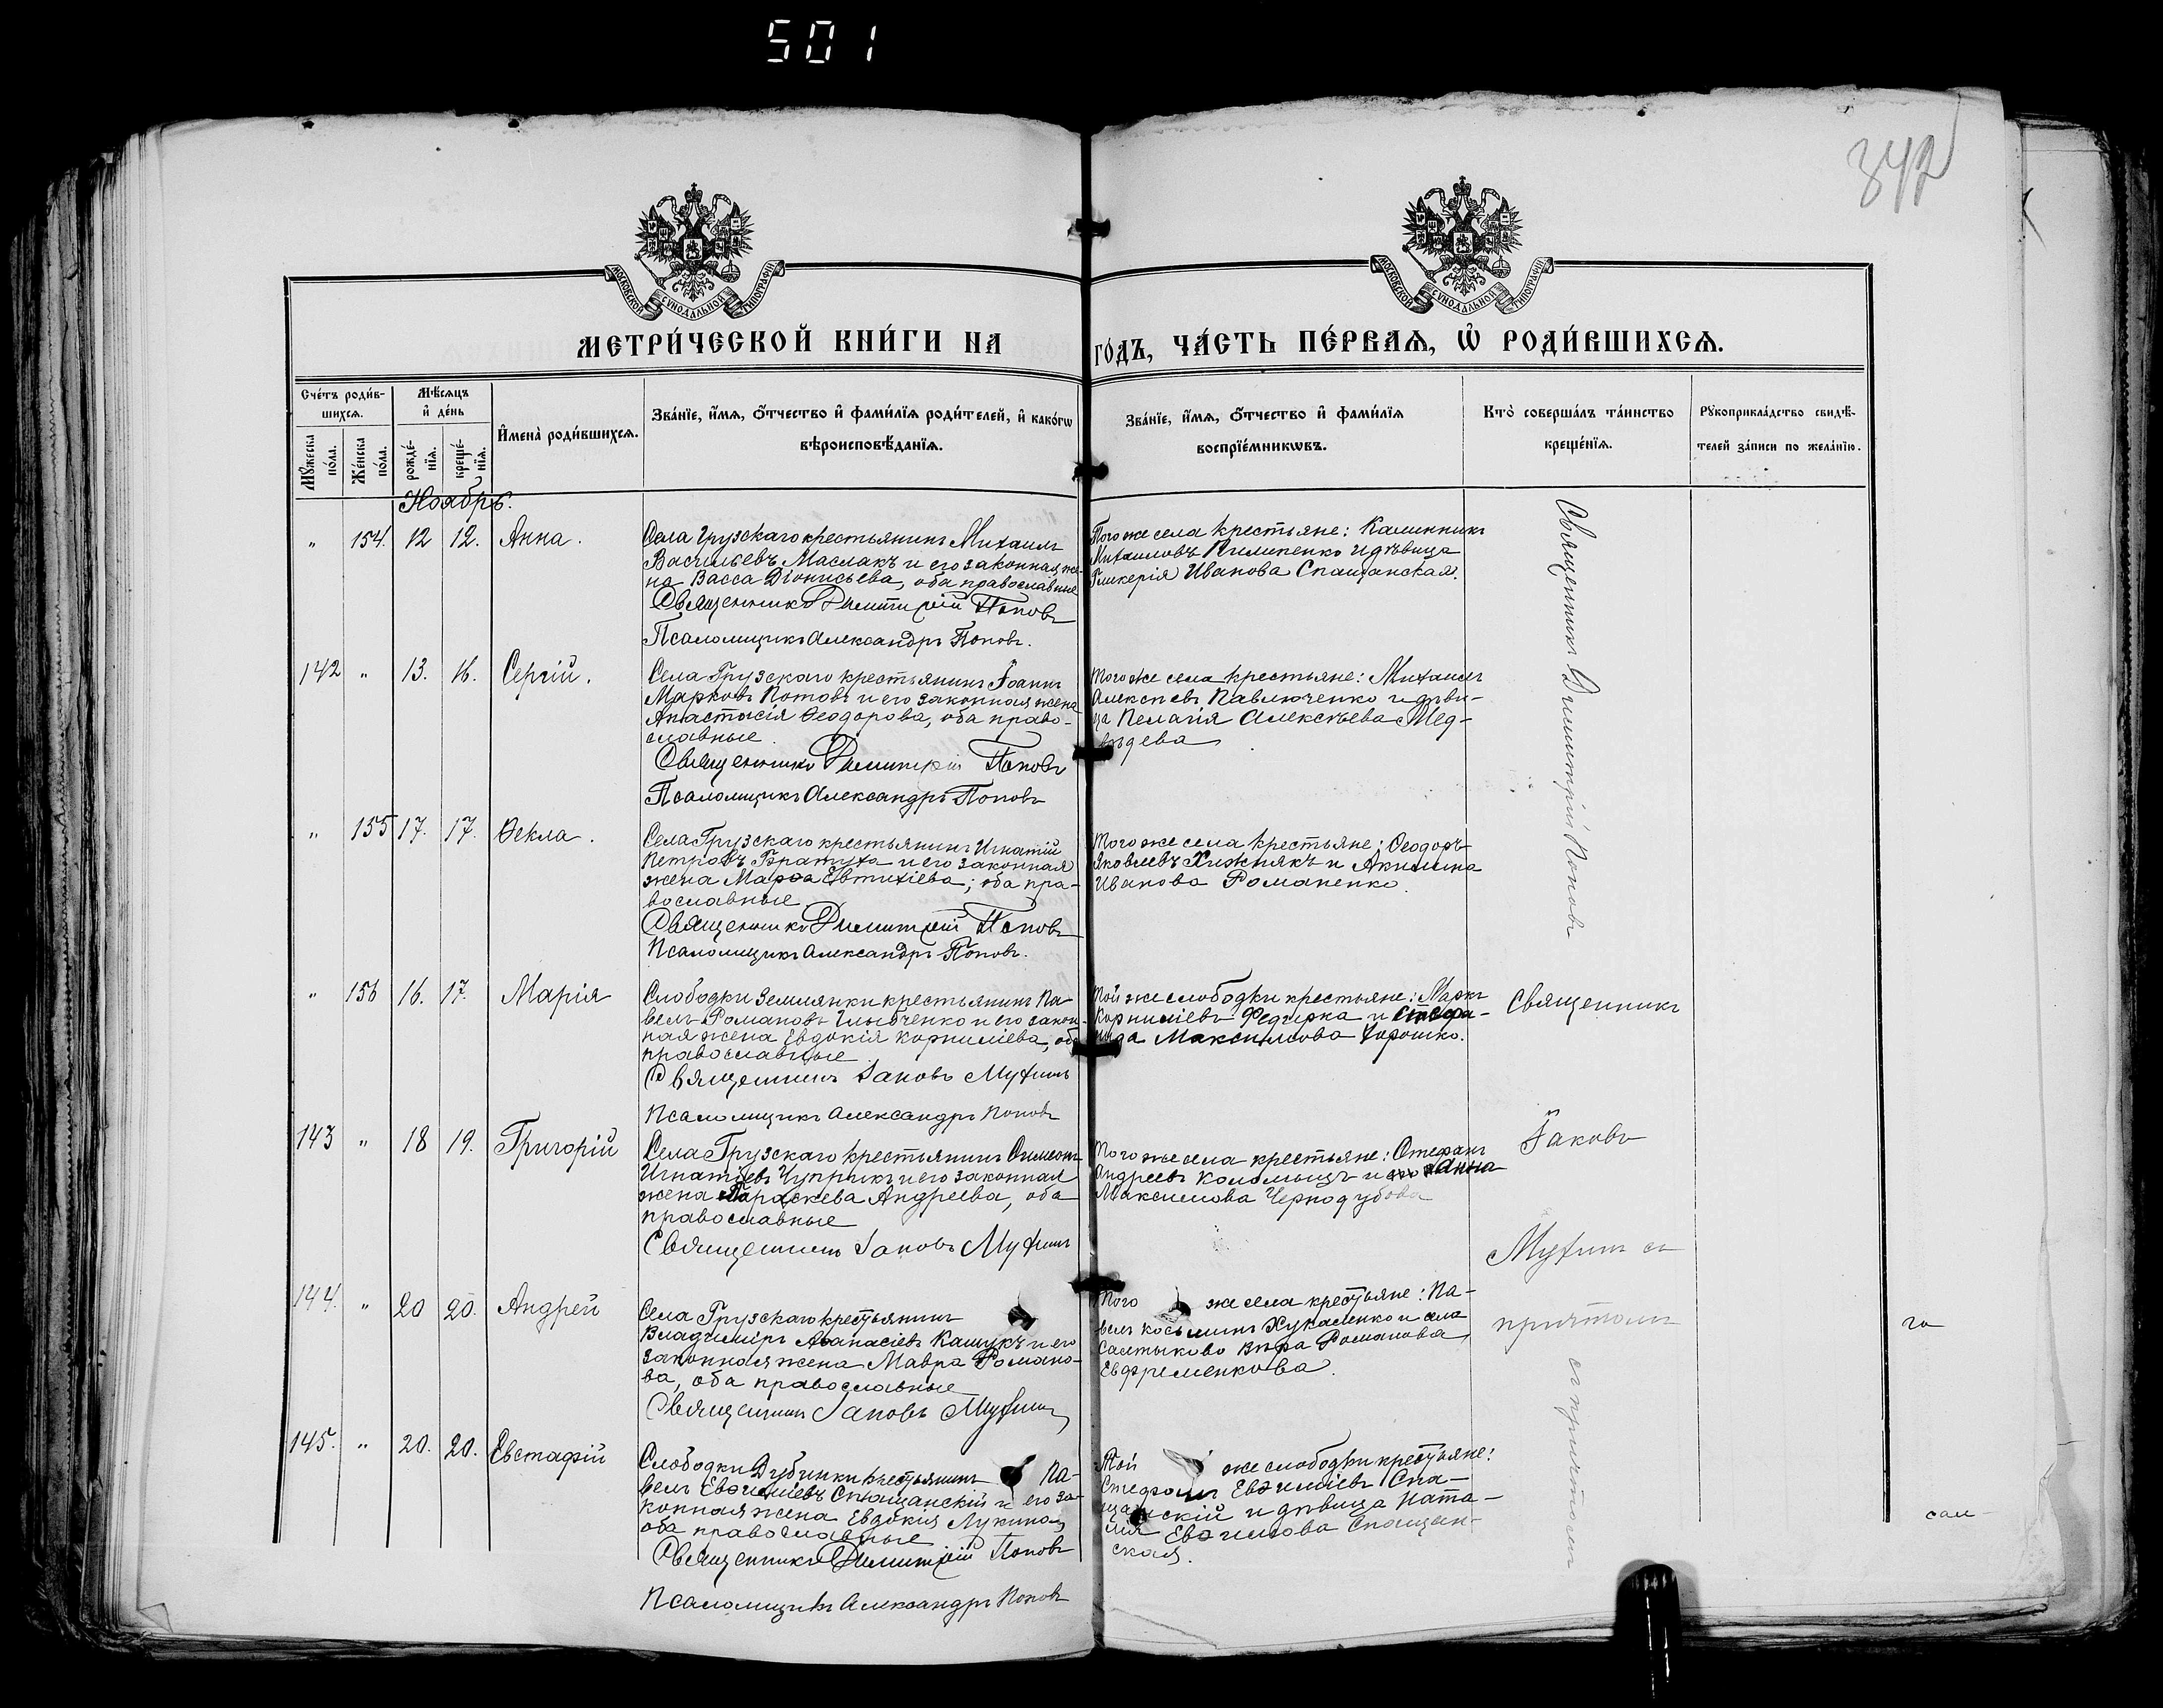 501
342
МОСКОВСКОЙ СѴНОДАЛЬНОЙ ТИПОГРАФІИ
МОСКОВСКОЙ СѴНОДАЛЬНОЙ ТИПОГРАФІИ
МЕТРИ́ЧЕСКОЙ КНИ́ГИ НА ГО́ДЪ, ЧА́СТЬ ПЕ́РВАѦ, Ѡ҆ РОДИ́ВШИХСѦ.
Сче́тъ роди́в-
шихсѧ.
Мꙋ́жеска по́ла.
Же́нска по́ла.
Мѣ́сѧцъ
и҆ де́нь
рожде́-
нїѧ.
креще́-
нїѧ.
И҆мена̀ роди́вшихсѧ.
Зва́нїе, и҆́мѧ, ѻ҆́тчество и҆ фами́лїѧ роди́телей, и҆ како́гѡ
вѣроисповѣ́данїѧ.
Зва́нїе, и҆́мѧ, ѻ҆́тчество и҆ фами́лїѧ
воспрїе́мникѡвъ.
Кто̀ соверша́лъ та́инство
креще́нїѧ.
Рꙋкоприкла́дство свидѣ́-
телей за́писи по жела́нїю.
Ноябрь.
" 154. 12 12. Анна.
Села Грузскаго крестьянинъ Михаилъ
Васильевъ Маслакъ и его законная же-
на Васса Діонисьева, оба православные
Священникъ Димитрій Поповъ
Псаломщикъ Александръ Поповъ.
Того же села крестьяне: Калинникъ
Михаиловъ Пилипенко и дѣвица
Гликерія Иванова Спащанская.
Священникъ Димитрій Поповъ
142 " 13. 16. Сергій.
Села Грузскаго крестьянинъ Іоаннъ
Марковъ Котовъ и его законная жена
Анастасія Ѳеодорова, оба право-
славные.
Священникъ Димитрій Поповъ
Псаломщикъ Александръ Поповъ
Того же села крестьяне: Михаилъ
Алексѣевъ Павлюченко и дѣви-
ца Пелагія Алексѣева Мед-
вѣдева
" 155 17. 17. Ѳекла.
Села Грузскаго крестьянинъ Игнатій
Петровъ и его законная
жена Марѳа Евтихіева; оба пра-
вославные
Священникъ Димитрій Поповъ
Псаломщикъ Александръ Поповъ.
Того же села крестьяне: Ѳеодоръ
Яковлевъ Хижнякъ и Акилина
Иванова Романенко.
" 156 16. 17. Марія
Слободки Землянки крестьянинъ Па-
велъ Романовъ и его закон-
ная жена Евдокія Корниліева, оба
православные.
Священникъ Іаковъ Мухинъ
Псаломщикъ Александръ Поповъ
Той же слободки крестьяне: Маркъ
Корниліевъ Федирка и Стефа-
нида Максимова Хорошко.
Священникъ
143 " 18 19. Григорій
Села Грузскаго крестьянинъ Симеонъ
Игнатіевъ Чуприкъ и его законная
жена Параскева Андреева, оба
православные
Священникъ Іаковъ Мухинъ
Того же села крестьяне: Стефанъ
Андреевъ Коломыцъ и Анна
Максимова Чернодубова
Іаковъ
Мухинъ съ
причтомъ
144. " 20 20. Андрей
Села Грузскаго крестьянинъ
Владимиръ Аѳанасіевъ Кашукъ и его
законная жена Мавра Романо-
ва, оба православные
Священникъ Іаковъ Мухинъ
Того же села крестьяне: Па-
велъ Косьминъ и села
Салтыково Вѣра Романова
Ефременкова.
го
съ причтомъ
145. " 20. 20. Евстафій
Слободки Дубинки крестьянинъ Па-
велъ Евѳиміевъ Спащанскій и его за-
конная жена Евдокія Лукина,
оба православные
Священникъ Димитрій Поповъ
Псаломщикъ Александръ Поповъ
Той же слободки крестьяне:
Стефанъ Евѳиміевъ Спа-
щанскій и дѣвица Ната-
лія Евѳимова Спащан-
ская.
сам-